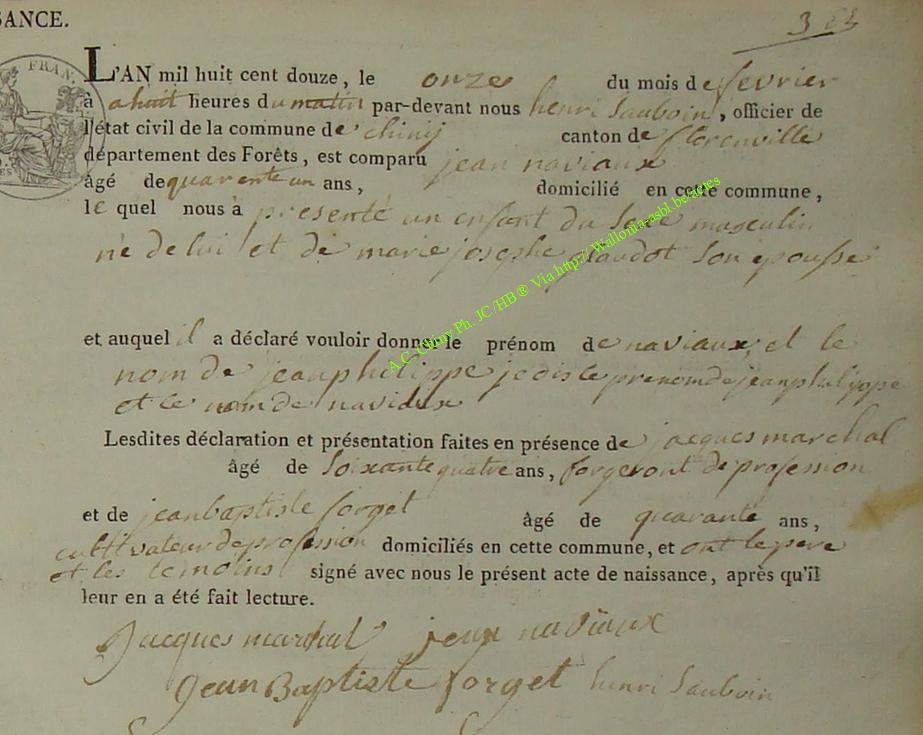 SANCE.
FRAN.
L'AN mil huit cent douze, le onze du mois de fevrier
à a huit heures du matin par-devant nous henri Sauboin, officier de
l'état civil de la commune de chiny canton de florenville
département des Forêts, est comparu jean naviaux
âgé de quarente un ans, domicilié en cette commune,
le quel nous a presenté un enfant du Sexe masculin
né de lui et de marie josephe Son epousse
et auquel il a déclaré vouloir donner le prénom de naviaux, et le
nom de jean philippe je dis le prenom de jean philippe
et le nom de naviaux
Lesdites déclaration et présentation faites en présence de jacques marchal
âgé de Soixante quatre ans, forgeront de profession
et de jean baptiste forget âgé de quarante ans,
cultivateur de profession domiciliés en cette commune, et ont le pere
et les temoins signé avec nous le présent acte de naissance, après qu'il
leur en a été fait lecture.
Jacques marchal jean naviaux
Jean Baptiste forget henri Sauboin
A.C. Chiny Ph. JC /HB ® Via http://Wallonia-asbl.be/actes